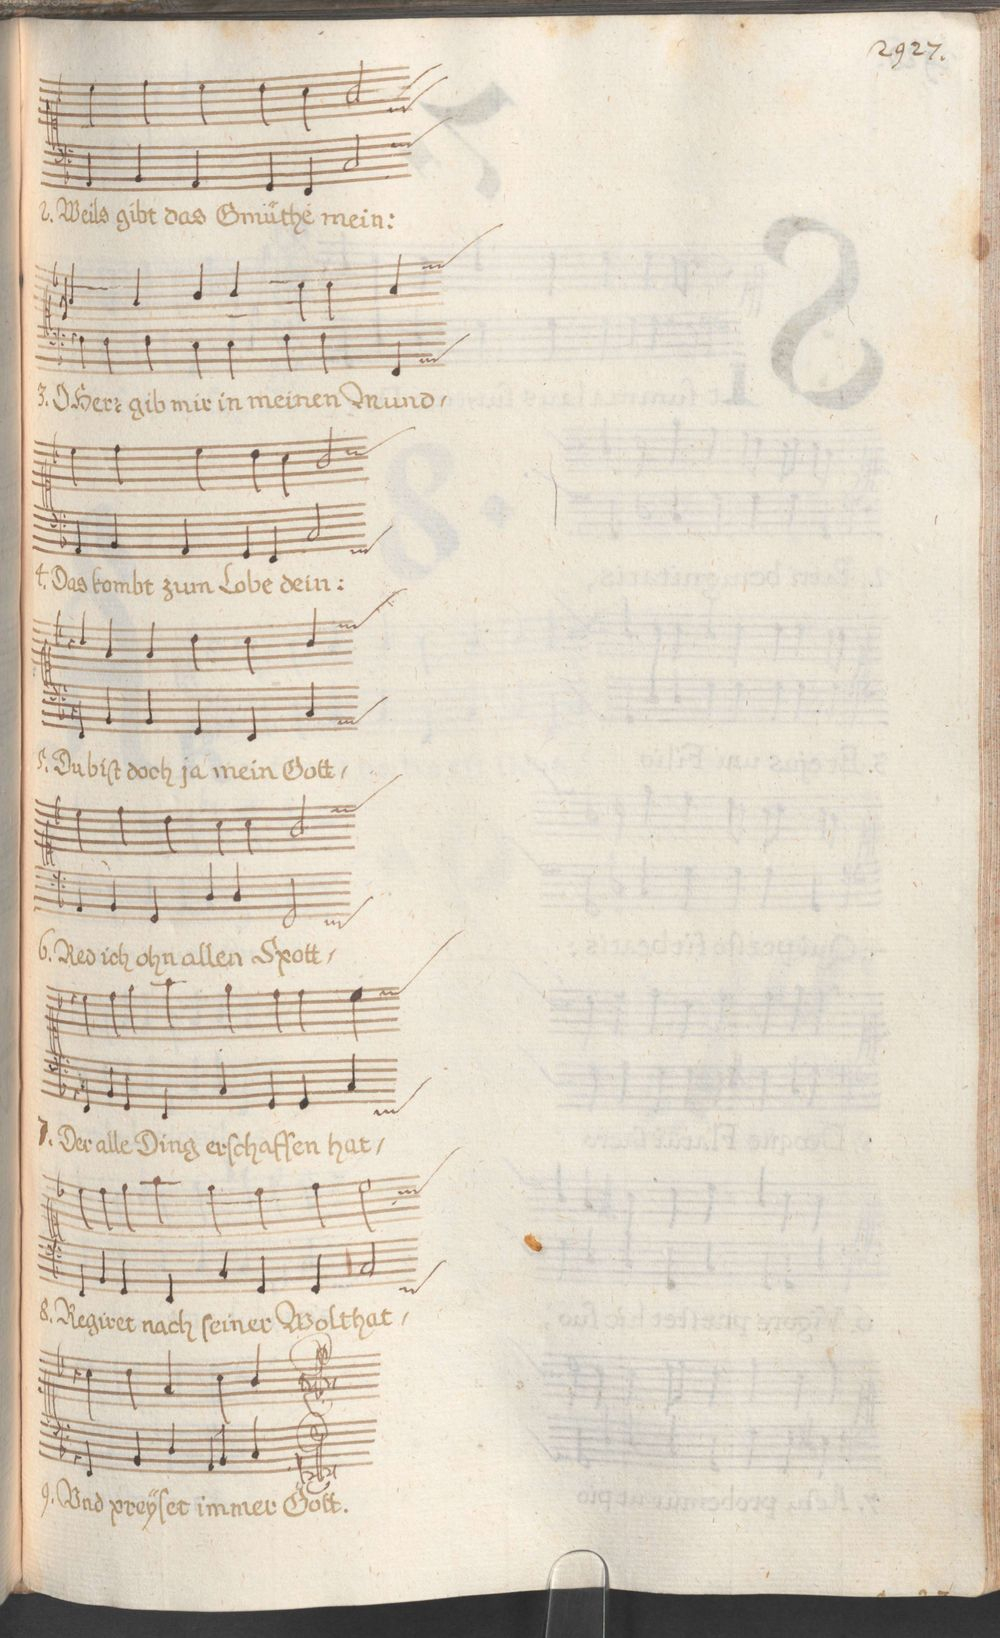 2927.
2. Weils gibt das Gmüthe mein:
3. O Herr gib mir in meinen Mund/
4. Das kombt zum Lobe dein:
5. Du bist doch ja mein Gott/
6. Red ich ohn allen Spott/
7. Der alle Ding erschaffen hat/
8. Regiret nach seiner Wolthat/
9. Vnd preÿset immer Gott.